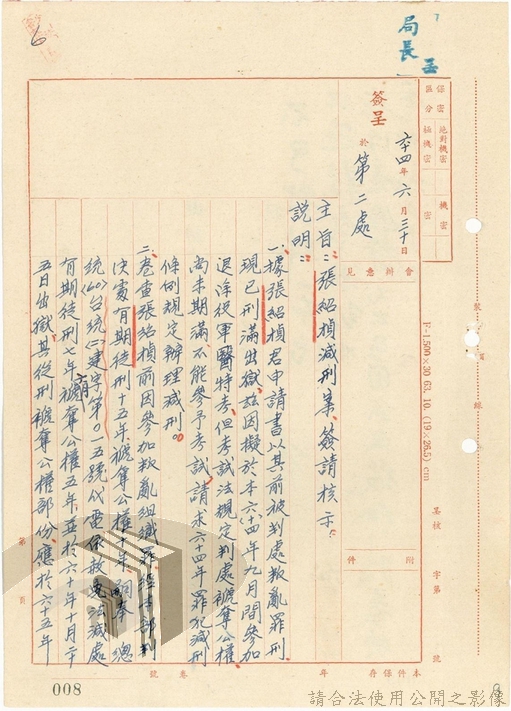 局長
保密區分
絕對機密
極機密
機密
密
簽呈
六十四年六月三十日
於第二處
會辦意見
附件
主旨：張紹楨減刑案、簽請核示。
說明：
一、據張紹楨君申請書以其前被判處叛亂罪刑
現已刑滿出獄、茲因擬於本(六四)年九月間參加
退除役軍醫特考、但考試法規定判處褫奪公權、
尚未期滿不能參予考試、請求六十四年罪犯減刑
條例規定辦理減刑。
二、卷查張紹楨前因參加叛亂組織罪、經
決處有期徒刑十五年、褫奪公權十年、嗣奉 總
統(60)台統(一)達字第〇一五號代電依赦免法減處
有期徒刑七年、褫奪公權五年、並於六十年十月二十
五日出獄、其從刑褫奪公權部份、應於六五年
F-1,500×30 63. 10. (19×26.5) cm
裝
線
字第
號
本件保存
年
卷
號
008
請合法使用公開之影像